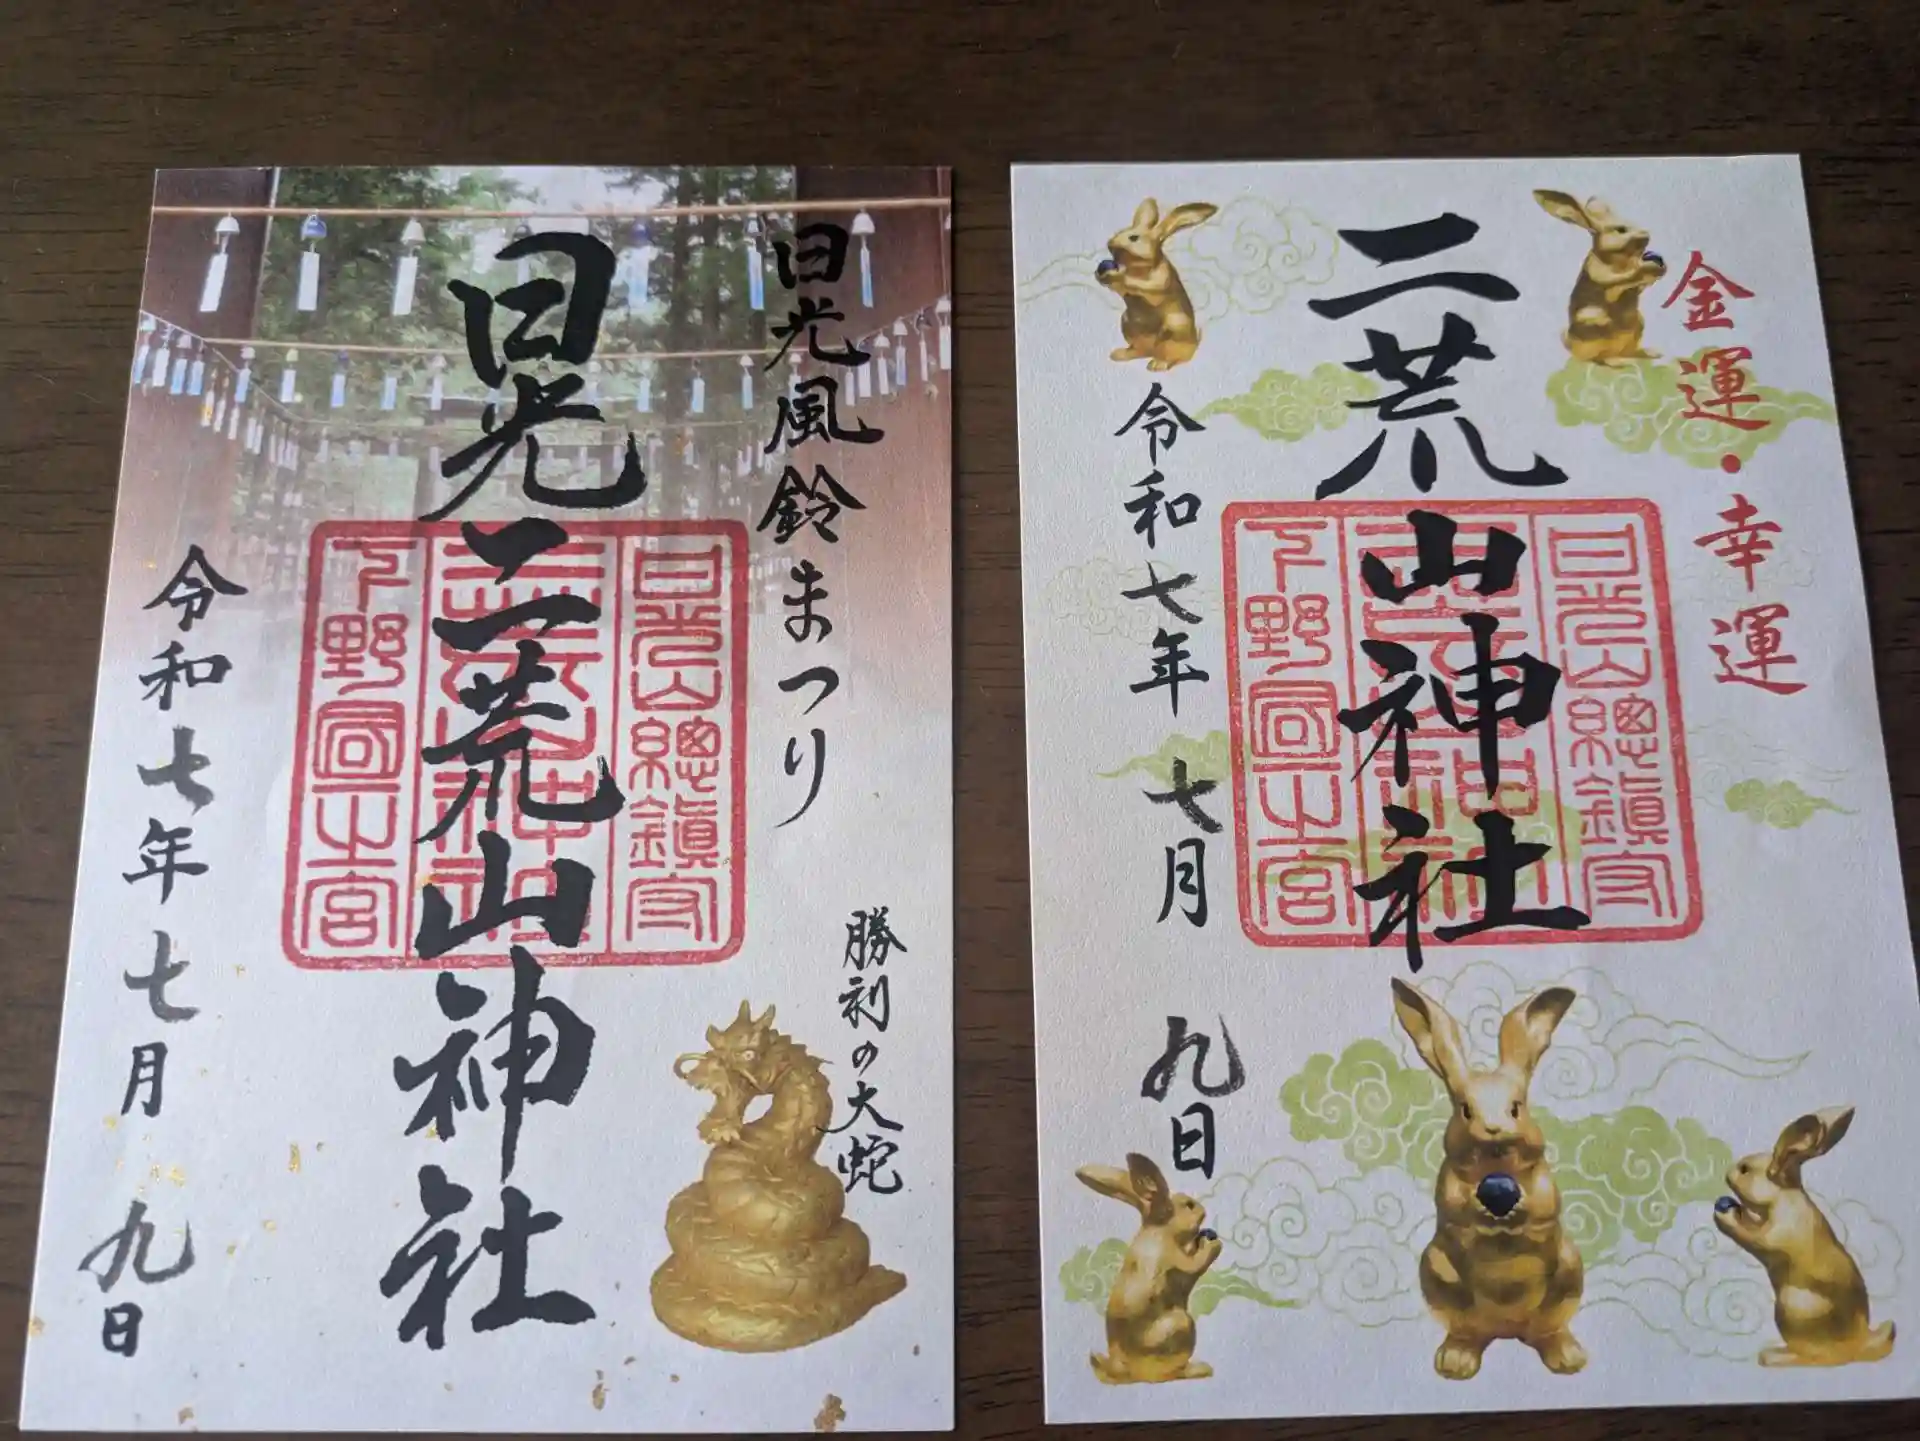 日光風鈴まつり
勝利の大蛇
日光二荒山神社
日光山總鎮守
下野國一之宮
令和七年七月九日
金運・幸運
二荒山神社
日光山總鎮守
下野國一之宮
令和七年七月九日